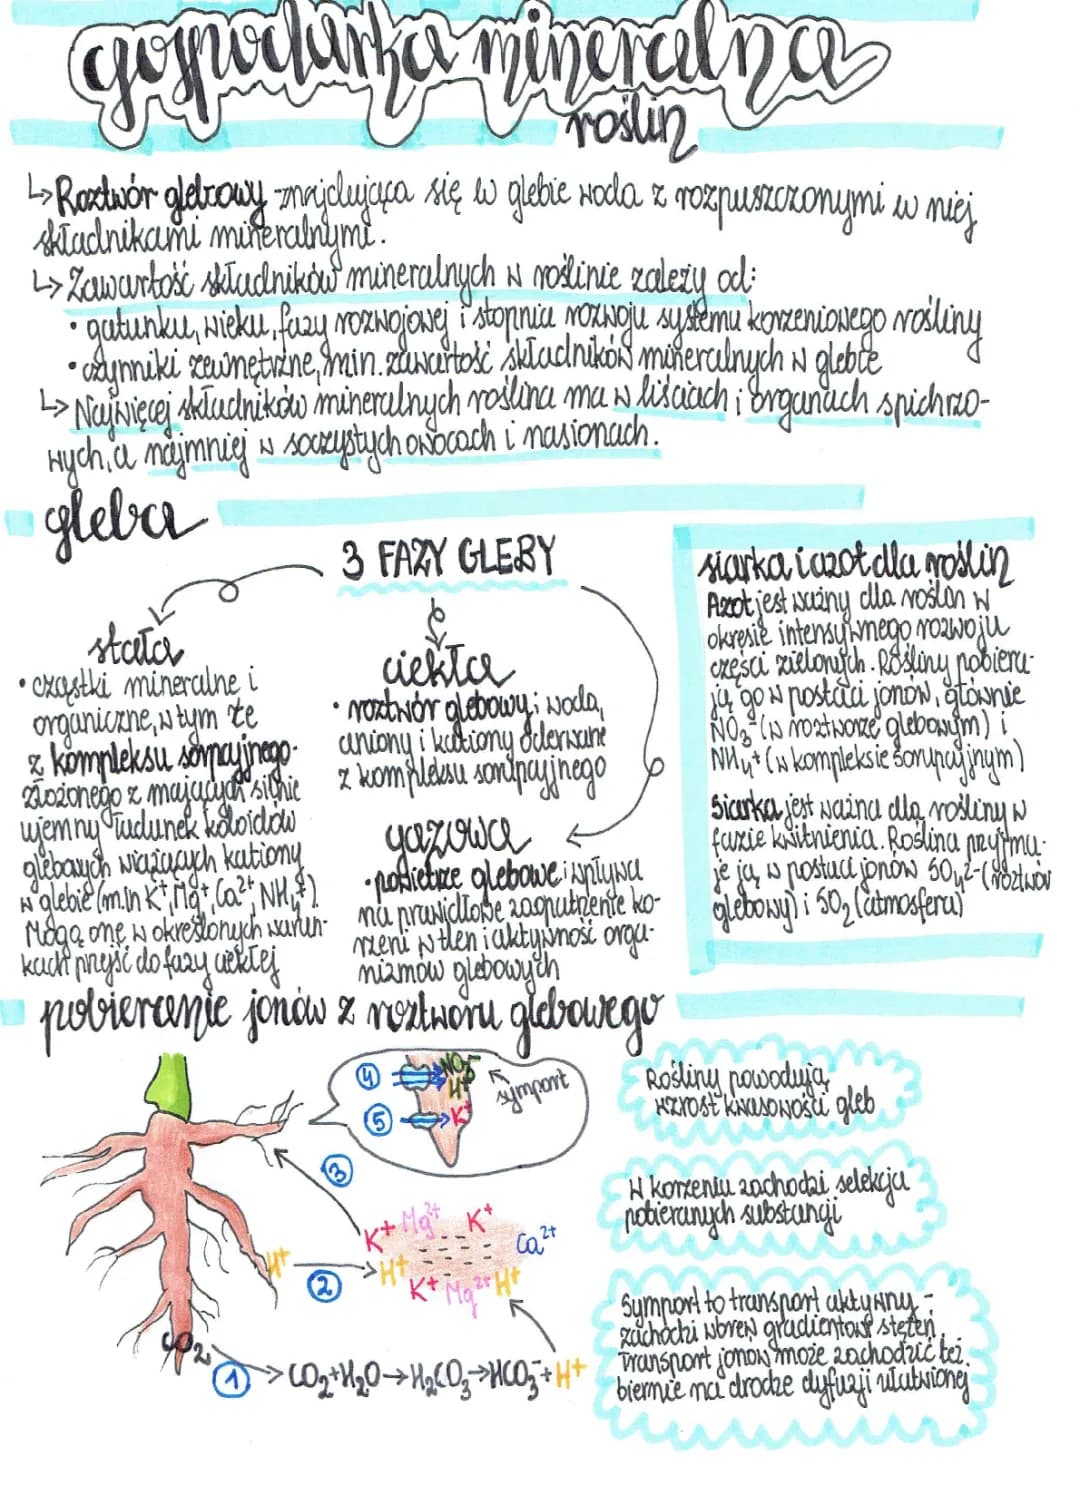 gospodarka mineralna
roślin
↳ Roztwór glebowy - znajdująca się w glebie woda z rozpuszczonymi w niej
składnikami mineralnymi.
↳ Zawartość składników mineralnych w roślinie zależy od:
• gatunku, wieku, fazy rozwojowej i stopnia rozwoju systemu korzeniowego rośliny
• czynniki zewnętrzne, min. zawartość składników mineralnych w glebie
↳ Najwięcej składników mineralnych roślina ma w liściach i organach spichrzo-
wych, a najmniej w soczystych owocach i nasionach.
gleba
3 FAZY GLEBY
stała
• cząstki mineralne i
organiczne, w tym te
z kompleksu sorpcyjnego
złożonego z mających silnie
ujemny ładunek koloidów
glebowych wiążących kationy
w glebie (m.in K⁺, Mg⁺, Ca²⁺, NH₄⁺).
Mogą one w określonych warun-
kach przejść do fazy ciekłej
ciekła
• roztwór glebowy; woda,
aniony i kationy oderwane
z kompleksu sorpcyjnego
gazowa
• powietrze glebowe i wpływa
na prawidłowe zaopatrzenie ko-
rzeni w tlen i aktywność orga-
nizmów glebowych
siarka i azot dla roślin
Azot jest ważny dla roślin w
okresie intensywnego rozwoju
części zielonych. Rośliny pobiera-
ją go w postaci jonów, głównie
NO₃⁻ (w roztworze glebowym) i
NH₄⁺ (w kompleksie sorpcyjnym)
Siarka jest ważna dla rośliny w
fazie kwitnienia. Roślina przyjmu-
je ją w postaci jonów SO₄²⁻ (roztwór
glebowy) i SO₂ (atmosfera)
pobieranie jonów z roztworu glebowego
4 NO₃⁻
H⁺
symport
5 K⁺
3
K⁺ Mg²⁺ K⁺
Ca²⁺
H⁺ 2 H⁺
K⁺ Mg²⁺ H⁺
CO₂
1 CO₂+H₂O→H₂CO₃→HCO₃⁻+H⁺
Rośliny powodują
wzrost kwasowości gleb
W korzeniu zachodzi selekcja
pobieranych substancji
Symport to transport aktywny -
zachodzi wbrew gradientowi stężeń.
Transport jonów może zachodzić też
biernie na drodze dyfuzji ułatwionej